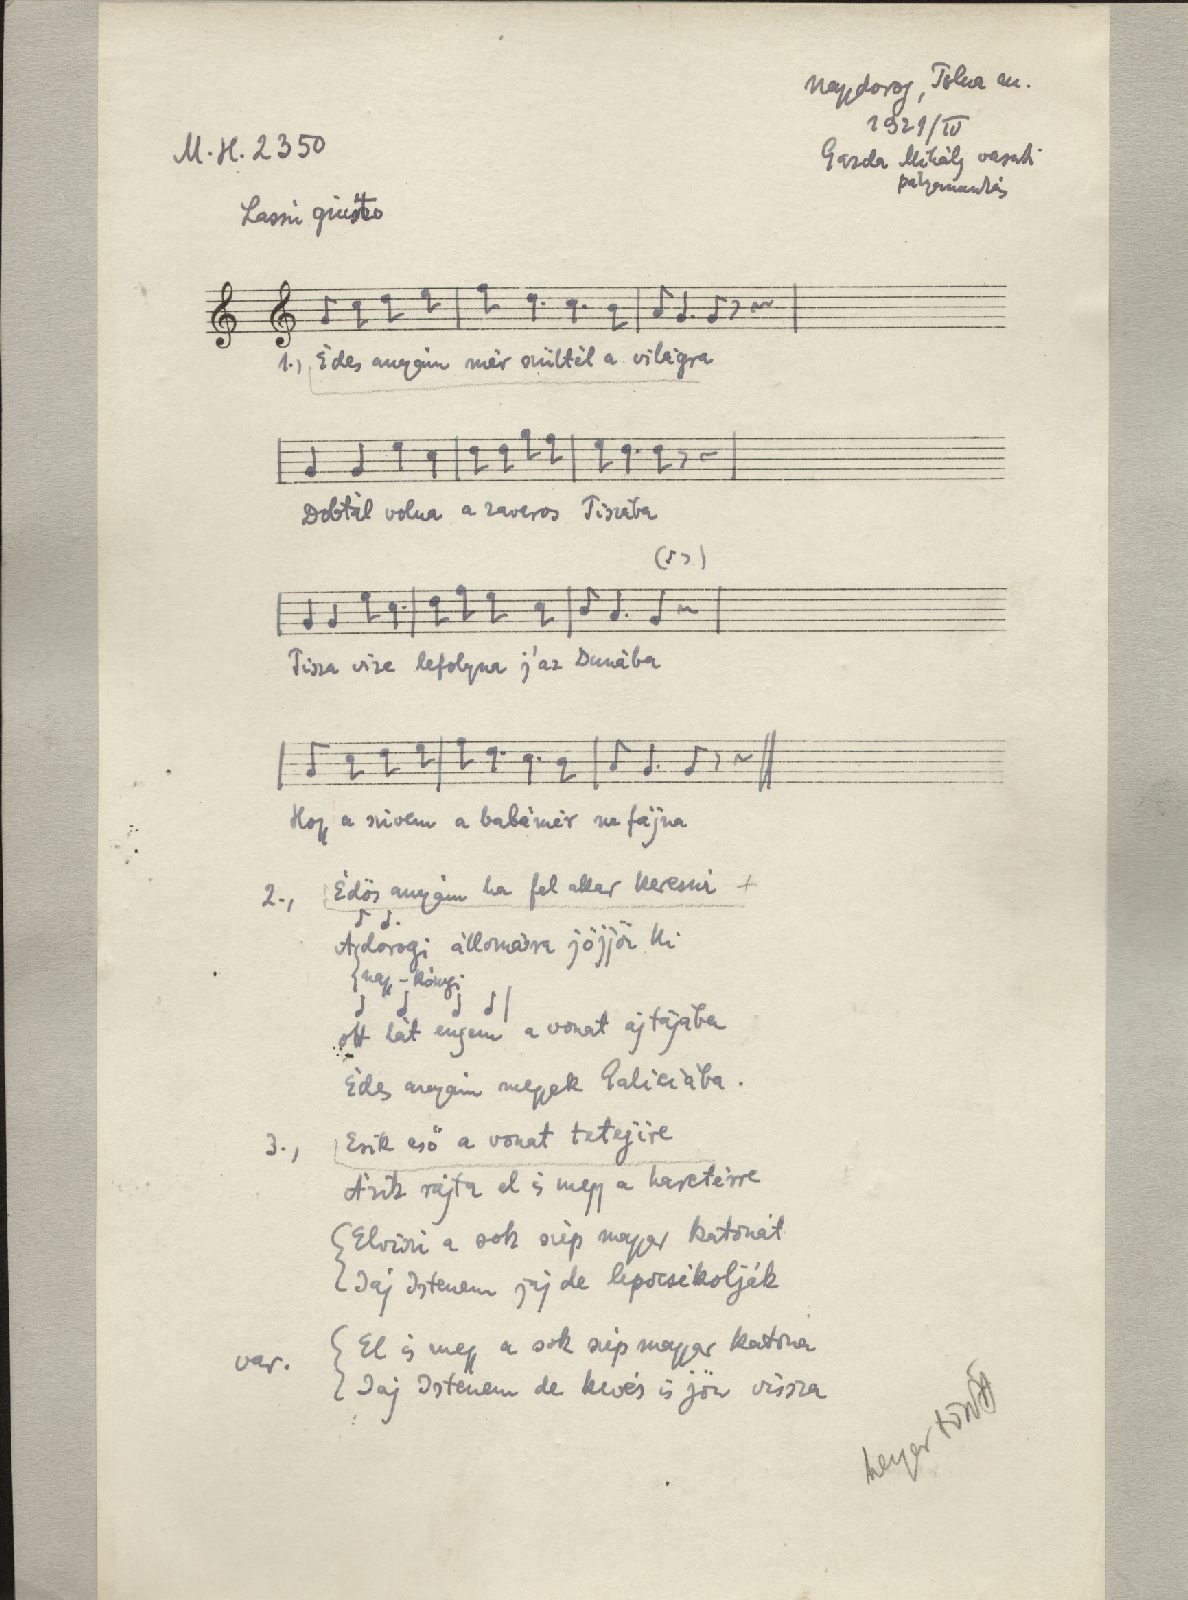 Nagydorog, Tolna m.
1921/IV
M. H. 2350
Gazda Mihály vasuti
pályamunkás
Lassú giusto
1., Édes anyám mér szültél a világra
Dobtál volna a zavaros Tiszába
(♪ 𝄾)
Tisza vize lefolyna j'az Dunába
Hogy a szivem a babámér ne fájna
2., Édös anyám ha fel akar keresni +
A dorogi állomásra jöjjön ki
{nagy-kónyi
ott lát engem a vonat ajtajába
Édes anyám megyek Galiciába.
3., Esik eső a vonat tetejire
Ázik rajta el is megy a harctérre
{Elviszi a sok szép magyar katonát
{Jáj Istenem jáj de lepocsékolják
var. {El is megy a sok szép magyar katona
{Jaj Istenem de kevés is jön vissza